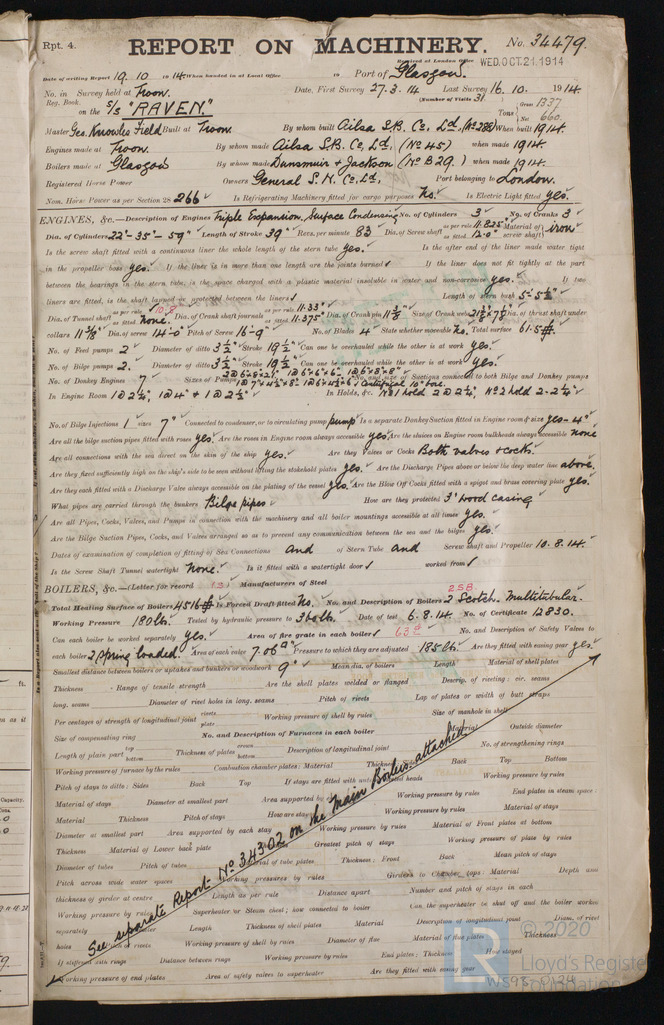 Rpt. 4.
REPORT ON MACHINERY.
No. 34479.
Received at London Office WED. OCT. 21. 1914
Date of writing Report 19. 10 19 14. When handed in at Local Office 19 Port of Glasgow.
No. in Survey held at Troon. Date, First Survey 27. 3. 14 Last Survey 16. 10. 1914.
Reg. Book. (Number of Visits 31
on the S/S "RAVEN." Tons Gross 1337 Net 660
Master Geo. Knowles Field Built at Troon. By whom built Ailsa S.B. Co, Ld, (No 288) When built 1914.
Engines made at Troon. By whom made Ailsa S.B. Co, Ld. (No 45) when made 1914.
Boilers made at Glasgow By whom made Dunsmuir & Jackson (No B 29.) when made 1914.
Registered Horse Power Owners General S. N. Co, Ld. Port belonging to London.
Nom. Horse Power as per Section 28 266 Is Refrigerating Machinery fitted for cargo purposes No. Is Electric Light fitted yes.
ENGINES, &c.—Description of Engines Triple Expansion, Surface Condensing No. of Cylinders 3 No. of Cranks 3
Dia. of Cylinders 22"-35"-59" Length of Stroke 39" Revs. per minute 83 Dia. of Screw shaft as per rule 11.825" as fitted 12.0" Material of screw shaft iron
Is the screw shaft fitted with a continuous liner the whole length of the stern tube yes. Is the after end of the liner made water tight
in the propeller boss yes. If the liner is in more than one length are the joints burned If the liner does not fit tightly at the part
between the bearings in the stern tube, is the space charged with a plastic material insoluble in water and non-corrosive yes. If two
liners are fitted, is the shaft lapped or protected between the liners Length of stern bush 5-5½"
Dia. of Tunnel shaft as per rule 10.8 as fitted none. Dia. of Crank shaft journals as per rule 11.33" as fitted 11.375" Dia. of Crank pin 11⅜" Size of Crank webs Dia. of thrust shaft under
collars 11⅜" Dia. of screw 14-0" Pitch of Screw 16-9" No. of Blades 4 State whether moveable No. Total surface 61.5
No. of Feed pumps 2 Diameter of ditto 3½" Stroke 19½" Can one be overhauled while the other is at work yes.
No. of Bilge pumps 2. Diameter of ditto 3½" Stroke 19½ Can one be overhauled while the other is at work yes.
No. of Donkey Engines 7 Sizes of Pumps No. and size of Suctions connected to both Bilge and Donkey pumps
In Engine Room 1@2½, 1@4" & 1@2½" In Holds, &c. No 1 hold 2@2¼", No 2 hold 2-2¼"
No. of Bilge Injections 1 sizes 7" Connected to condenser, or to circulating pump pump Is a separate Donkey Suction fitted in Engine room & size yes - 4"
Are all the bilge suction pipes fitted with roses yes. Are the roses in Engine room always accessible yes. Are the sluices on Engine room bulkheads always accessible none
Are all connections with the sea direct on the skin of the ship yes. Are they Valves or Cocks Both valves & cocks.
Are they fixed sufficiently high on the ship's side to be seen without lifting the stokehold plates yes. Are the Discharge Pipes above or below the deep water line above.
Are they each fitted with a Discharge Valve always accessible on the plating of the vessel yes. Are the Blow Off Cocks fitted with a spigot and brass covering plate yes.
What pipes are carried through the bunkers Bilge pipes How are they protected 3" wood casing
Are all Pipes, Cocks, Valves, and Pumps in connection with the machinery and all boiler mountings accessible at all times yes.
Are the Bilge Suction Pipes, Cocks, and Valves arranged so as to prevent any communication between the sea and the bilges yes.
Dates of examination of completion of fitting of Sea Connections and of Stern Tube and Screw shaft and Propeller 10. 8. 14.
Is the Screw Shaft Tunnel watertight None. Is it fitted with a watertight door worked from
BOILERS, &c.—(Letter for record (S) Manufacturers of Steel
Total Heating Surface of Boilers 4516 Is Forced Draft fitted No. No. and Description of Boilers 2 Scotch. Multitubular. 2SB
Working Pressure 180 lbs. Tested by hydraulic pressure to 360 lbs. Date of test 6. 8. 14. No. of Certificate 12830.
Can each boiler be worked separately yes. Area of fire grate in each boiler No. and Description of Safety Valves to
each boiler 2 Spring loaded Area of each valve 7.06 Pressure to which they are adjusted 185 lbs. Are they fitted with easing gear yes.
Smallest distance between boilers or uptakes and bunkers or woodwork 9" Mean dia. of boilers Length Material of shell plates
Thickness Range of tensile strength Are the shell plates welded or flanged Descrip. of riveting: cir. seams
long. seams Diameter of rivet holes in long. seams Pitch of rivets Lap of plates or width of butt straps
Per centages of strength of longitudinal joint rivets plate Working pressure of shell by rules Size of manhole in shell
Size of compensating ring No. and Description of Furnaces in each boiler Material Outside diameter
Length of plain part top bottom Thickness of plates crown bottom Description of longitudinal joint No. of strengthening rings
Working pressure of furnace by the rules Combustion chamber plates: Material Thickness Back Top Bottom
Pitch of stays to ditto: Sides Back Top If stays are fitted with nuts heads Working pressure by rules
Material of stays Diameter at smallest part Area supported by Working pressure by rules End plates in steam space:
Material Thickness Pitch of stays How are stays Working pressure by rules Material of stays
Diameter at smallest part Area supported by each stay Working pressure by rules Material of Front plates at bottom
Thickness Material of Lower back plate Greatest pitch of stays Working pressure of plate by rules
Diameter of tubes Pitch of tubes Material of tube plates Thickness: Front Back Mean pitch of stays
Pitch across wide water spaces Working pressures by rules Girders to Chamber tops: Material Depth and
thickness of girder at centre Length as per rule Distance apart Number and pitch of stays in each
Working pressure by rules Superheater or Steam chest; how connected to boiler Can the superheater be shut off and the boiler worked
separately Length Thickness of shell plates Material Description of longitudinal joint Diam. of rivet
holes Pitch of rivets Working pressure of shell by rules Diameter of flue Material of flue plates Thickness
If stiffened with rings Distance between rings Working pressure by rules End plates: Thickness How stayed
Working pressure of end plates Area of safety valves to superheater Are they fitted with easing gear
See separate Report No 34302 on the Main Boilers attached
© 2020
Lloyd's Register
Foundation
W598-0124